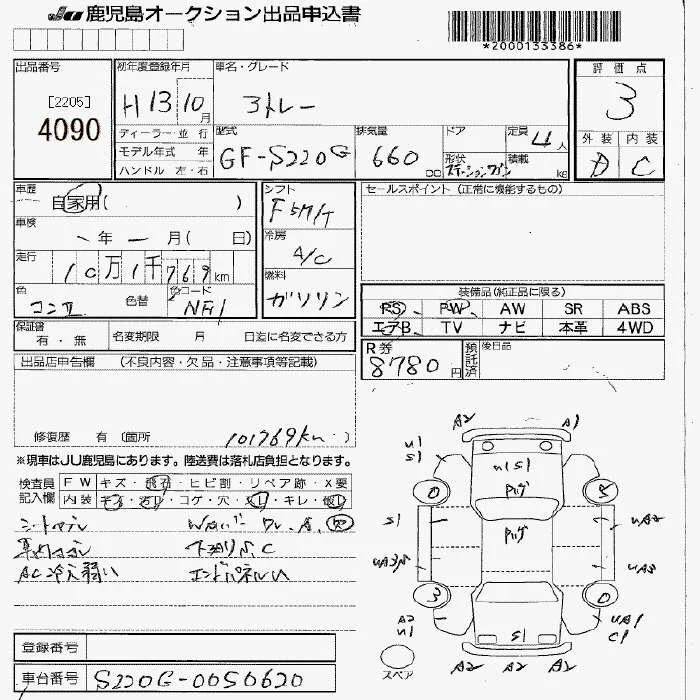 JU 鹿児島オークション出品申込書
*2000133386*
出品番号
[2205]
4090
初年度登録年月
H 13 10 月
ディーラー・並 行
モデル年式 年
ハンドル 左・右
車名・グレード
ストレー
型式
GF-S220G
排気量
660 cc
ドア
形状
ステーションワゴン
定員
4人
積載
kg
評 価 点
3
外 装 内 装
D C
車歴
自家用( )
車検
年 月( 日)
走行
10万1千769km
色
コン
色替
色コード
シフト
F5M/T
冷房
A/C
燃料
ガソリン
セールスポイント (正常に機能するもの)
装備品(純正品に限る)
PS PW AW SR ABS
エアB TV ナビ 本革 4WD
保証書
有・無
名変期限 月 日迄に名変できる方
R券
8780円
預託済
後日品
出品店申告欄 (不良内容・欠品・注意事項等記載)
修復歴 有 (箇所 101769km )
※現車はJU鹿児島にあります。陸送費は落札店負担となります。
検査員
記入欄
F W キズ・飛石・ヒビ割・リペア跡・X要
内装 キズ・汚れ・コゲ・穴・スレ・キレ・破レ
AC冷え弱い
エンドパネルU
A2 A1
U1
S1
U1 S1
S1
UA2
UA3
3
0
A2
U1
S1
UA1
C1
A2 A2 A2
スペア
登録番号
車台番号
S220G-0050620